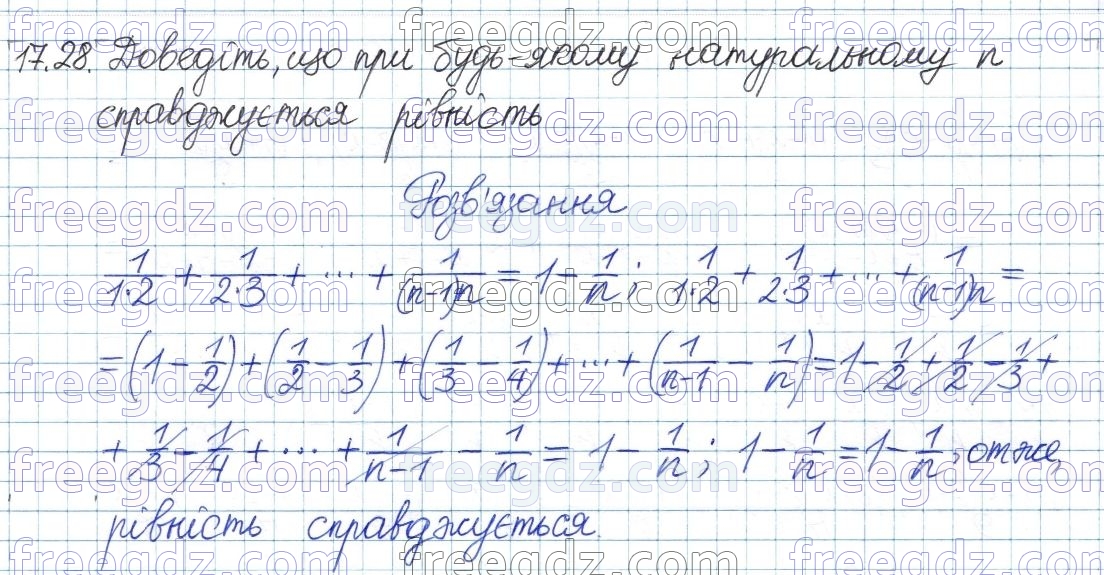 17.28. Доведіть, що при будь-якому натуральному n
справджується рівність
Розв'язання
1/(1·2) + 1/(2·3) + ... + 1/((n-1)n) = 1 - 1/n; 1/(1·2) + 1/(2·3) + ... + 1/((n-1)n) =
= (1 - 1/2) + (1/2 - 1/3) + (1/3 - 1/4) + ... + (1/(n-1) - 1/n) = 1 - 1/2 + 1/2 - 1/3 +
+ 1/3 - 1/4 + ... + 1/(n-1) - 1/n = 1 - 1/n; 1 - 1/n = 1 - 1/n, отже,
рівність справджується.
freegdz.com